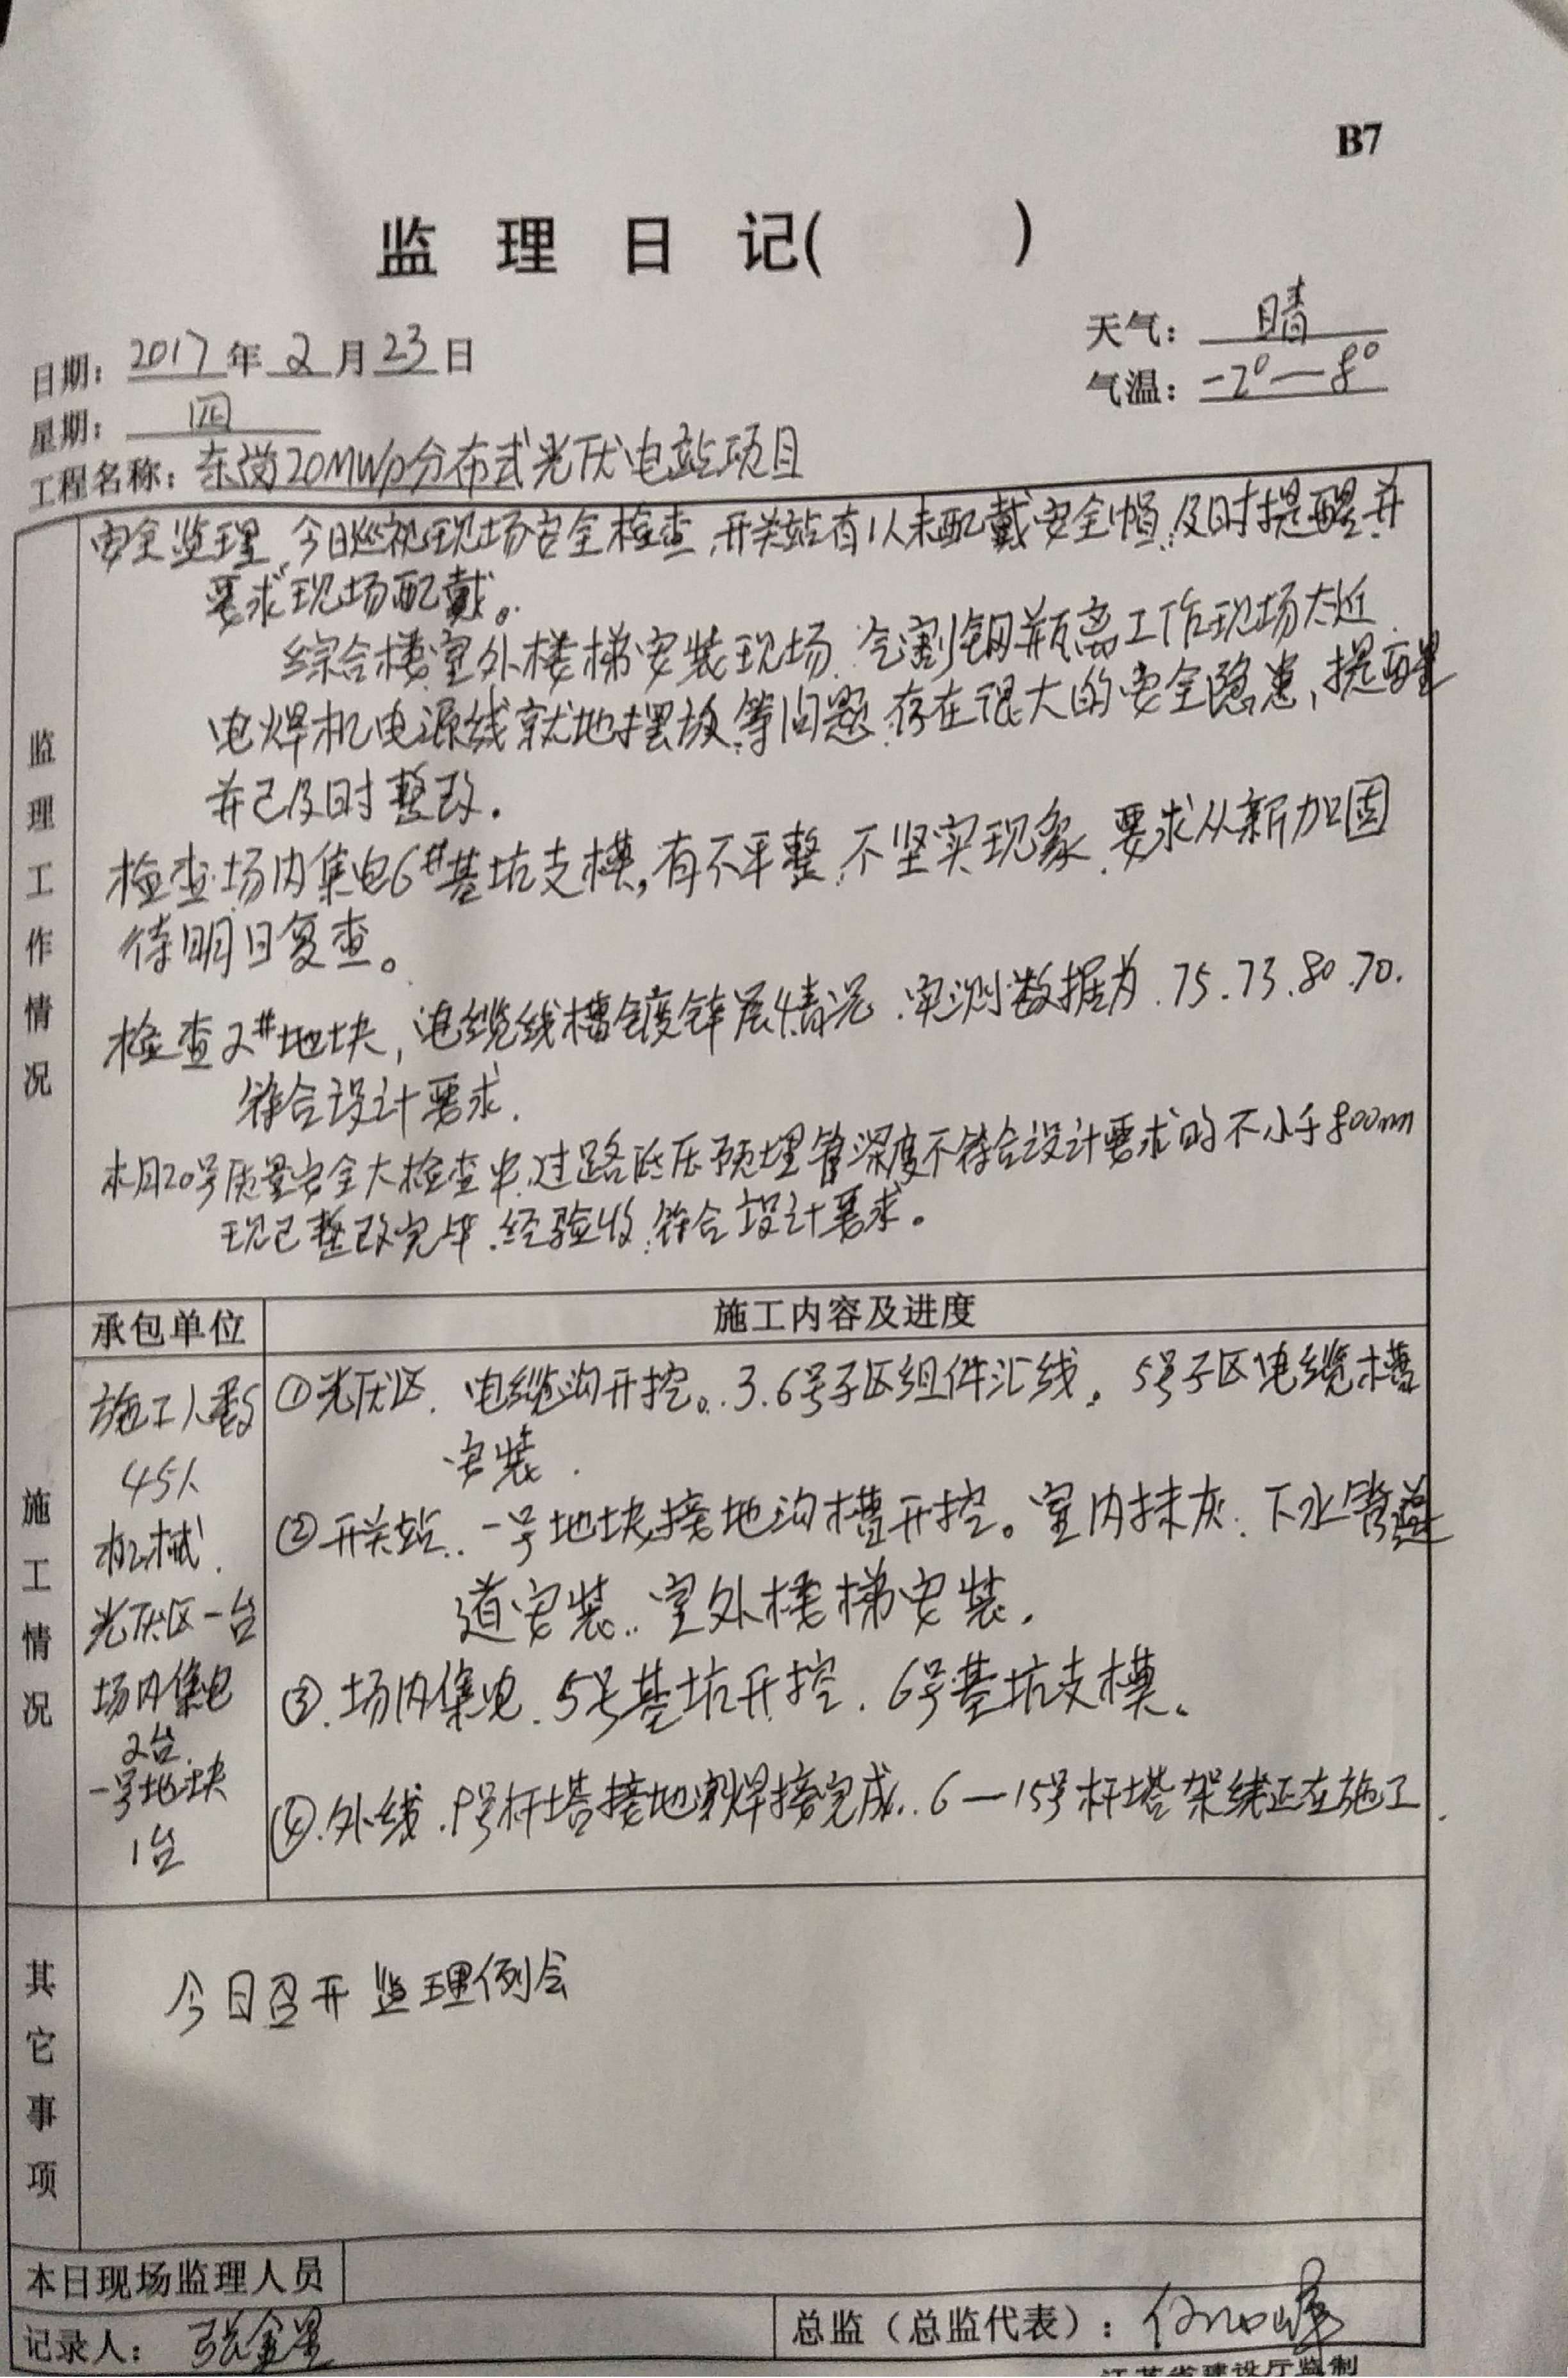 B7
监 理 日 记( )
日期: 2017 年 2 月 23 日
天气: 晴
星期: 四
气温: -2°—8°
工程名称: 东岗20MWp分布式光伏电站项目
监理工作情况
安全监理,今日巡视现场安全检查,开关站有1人未配戴安全帽,及时提醒并
要求现场配戴。
综合楼室外楼梯安装现场,气割钢瓶离工作现场太近
电焊机电源线就地摆放等问题,存在很大的安全隐患,提醒
并已及时整改.
检查场内集电6#基坑支模,有不平整,不坚实现象,要求从新加固
待明日复查。
检查2#地块,电缆线槽镀锌层情况.实测数据为.75.73.80.70.
符合设计要求.
本月20号质量安全大检查中,过路低压预埋管深度不符合设计要求的不小于800mm
现已整改完毕.经验收,符合设计要求。
施工情况
承包单位
施工内容及进度
施工人数
45人
机械.
光伏区一台
场内集电
2台.
一号地块
1台
①光伏区. 电缆沟开挖。.3.6号子区组件汇线。5号子区电缆槽
安装.
②开关站..一号地块接地沟槽开挖。室内抹灰.下水管
道安装..室外楼梯安装.
③.场内集电.5号基坑开挖.6号基坑支模。
④.外线.9号杆塔接地焊接完成..6—15号杆塔架线正在施工.
其它事项
今日召开监理例会
本日现场监理人员
记录人: 张金星
总监(总监代表):
江苏省建设厅监制